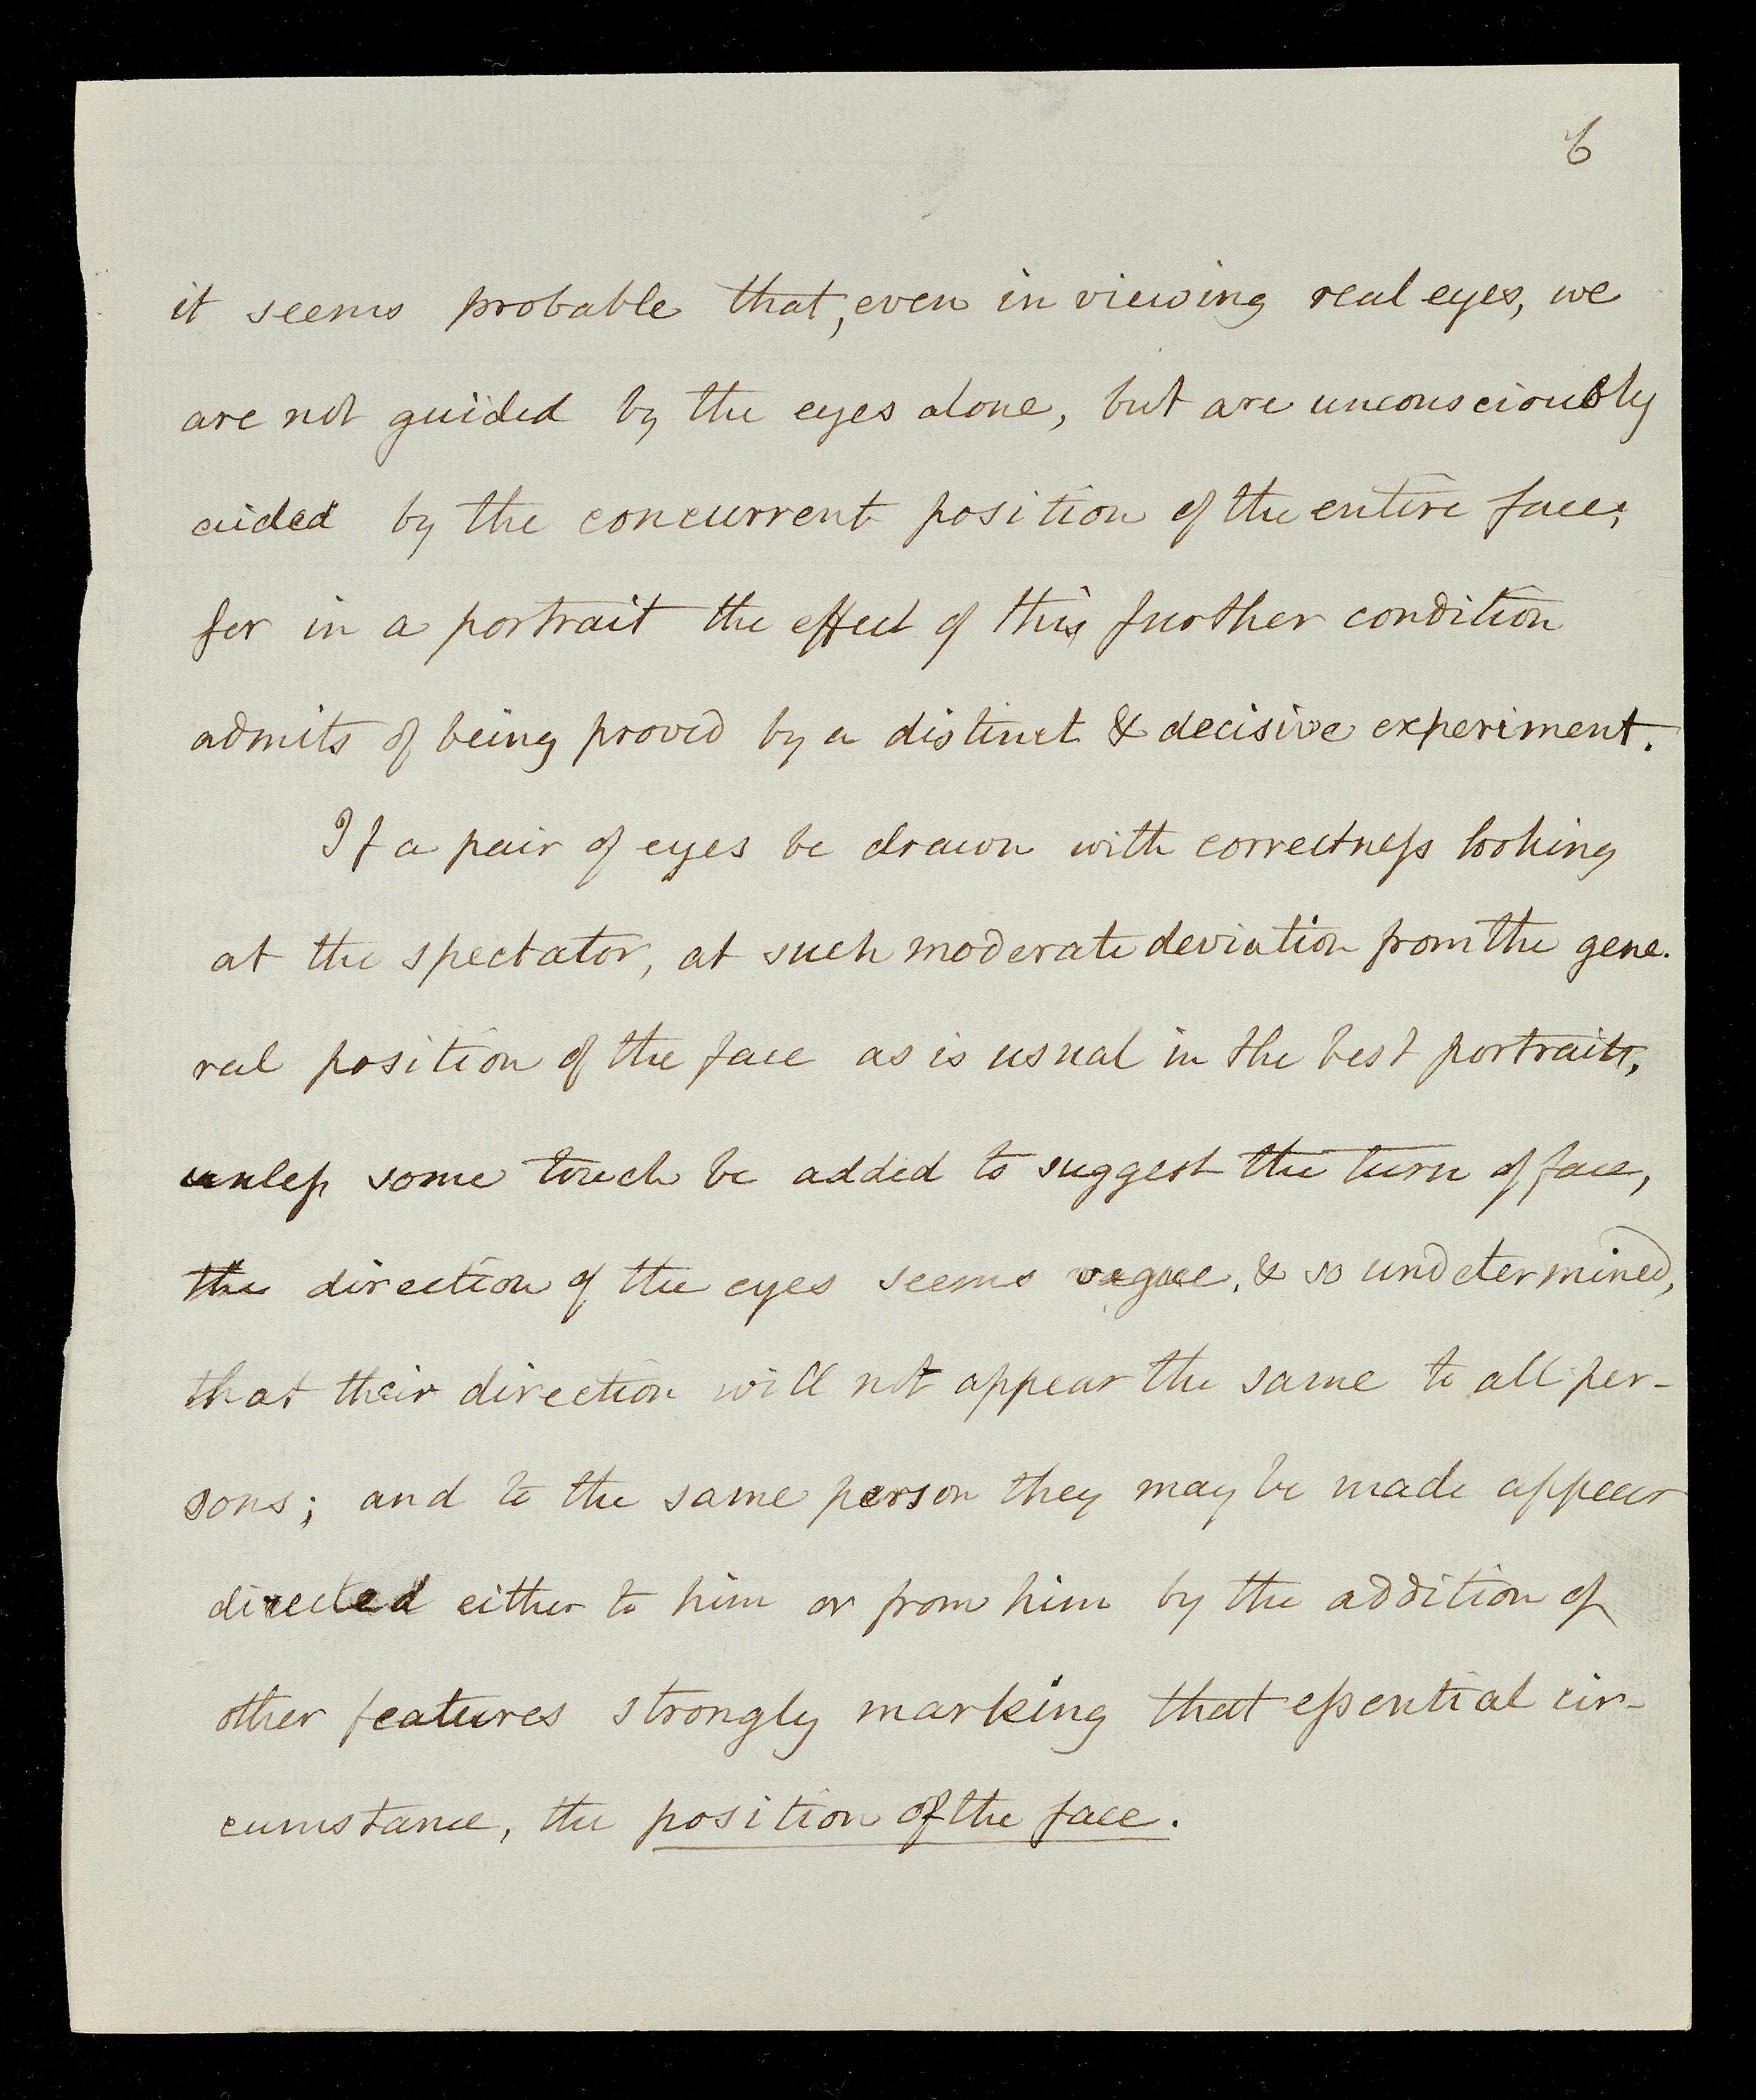 6
it seems probable that, even in viewing real eyes, we
are not guided by the eyes alone, but are unconsciously
aided by the concurrent position of the entire face;
for in a portrait the effect of this further condition
admits of being proved by a distinct & decisive experiment.
If a pair of eyes be drawn with correctneſs looking
at the spectator, at such moderate deviation from the gene-
ral position of the face as is usual in the best portraits,
unleſs some touch be added to suggest the turn of face,
the direction of the eyes seems vague, & so undetermined,
that their direction will not appear the same to all per-
sons; and to the same person they may be made appear
directed either to him or from him by the addition of
other features strongly marking that eſsential cir-
cumstance, the position of the face.